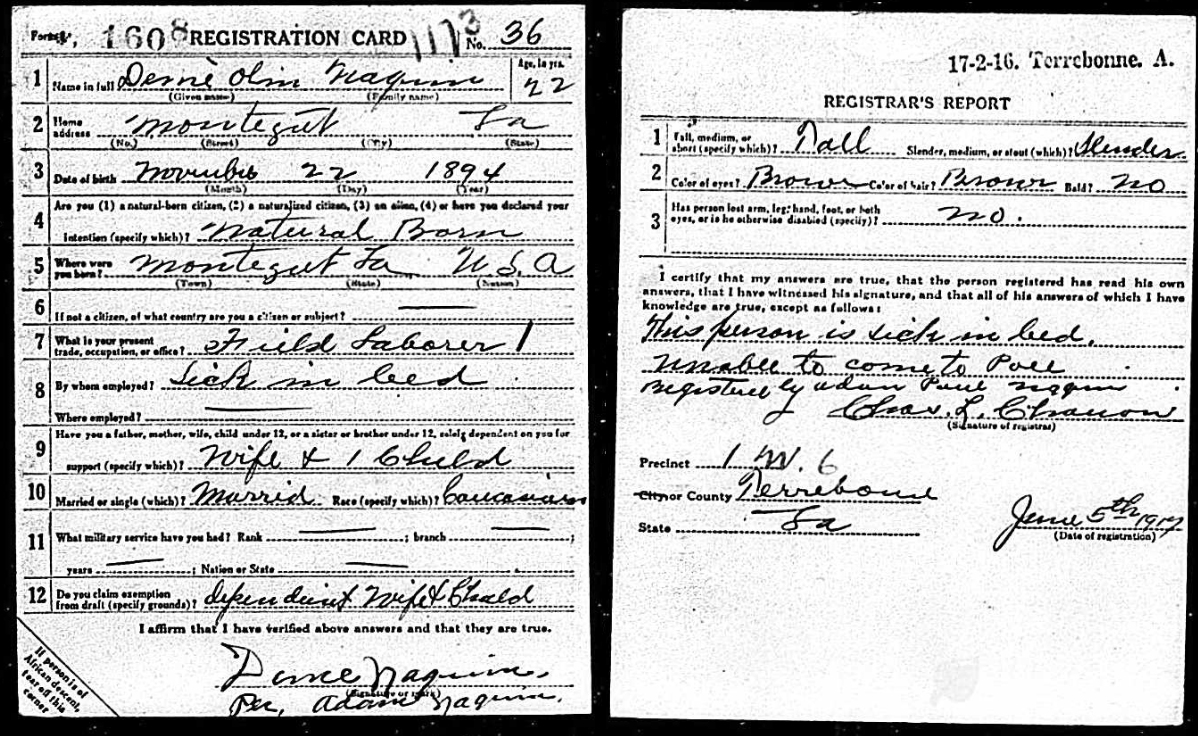 Form 1, 1608 REGISTRATION CARD 1173 No. 36
1 Name in full Demè Olin Naquin Age, in yrs. 22
(Given name) (Family name)
2 Home address Montegut La
(No.) (Street) (City) (State)
3 Date of birth November 22 1894
(Month) (Day) (Year)
4 Are you (1) a natural-born citizen, (2) a naturalized citizen, (3) an alien, (4) or have you declared your
intention (specify which)? Natural Born
5 Where were you born? Montegut La U.S.A
(Town) (State) (Nation)
6 If not a citizen, of what country are you a citizen or subject?
7 What is your present trade, occupation, or office? Field Laborer 1
8 By whom employed? Sick in bed
Where employed?
9 Have you a father, mother, wife, child under 12, or a sister or brother under 12, solely dependent on you for
support (specify which)? Wife & 1 Child
10 Married or single (which)? Married Race (specify which)? Caucasian
11 What military service have you had? Rank ; branch ;
years ; Nation or State
12 Do you claim exemption from draft (specify grounds)? dependant Wife & Child
I affirm that I have verified above answers and that they are true.
Deme Naquin.
(Signature or mark)
Per, Adam Naquin.
If person is of
African descent,
tear off this
corner
17-2-16. Terrebonne. A.
REGISTRAR'S REPORT
1 Tall, medium, or short (specify which)? Tall Slender, medium, or stout (which)? Slender
2 Color of eyes? Brown Color of hair? Brown Bald? No
3 Has person lost arm, leg, hand, foot, or both eyes, or is he otherwise disabled (specify)? no.
I certify that my answers are true, that the person registered has read his own
answers, that I have witnessed his signature, and that all of his answers of which I have
knowledge are true, except as follows:
This person is sick in bed,
unable to come to Poll
Registered by Adam Naquin
Chas. L.
(Signature of registrar)
Precinct 1 W. 6
City or County Terrebonne
State La
June 5th 1917
(Date of registration)